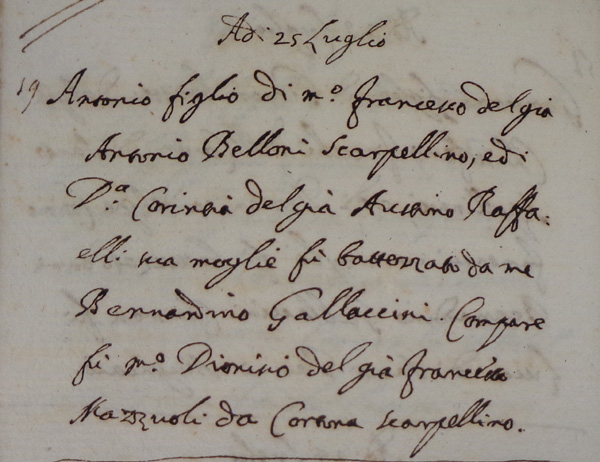 Adi 25 Luglio
19 Antonio figlio di m.º francesco del già
Antonio Belloni scarpellino, e di
D.ª Corintia del già Austino Raffa-
elli sua moglie fù battezzato da me
Bernardino Gallaccini. Compare
fù m.º Dionisio del già francesco
Mazzuoli da Cortona scarpellino.